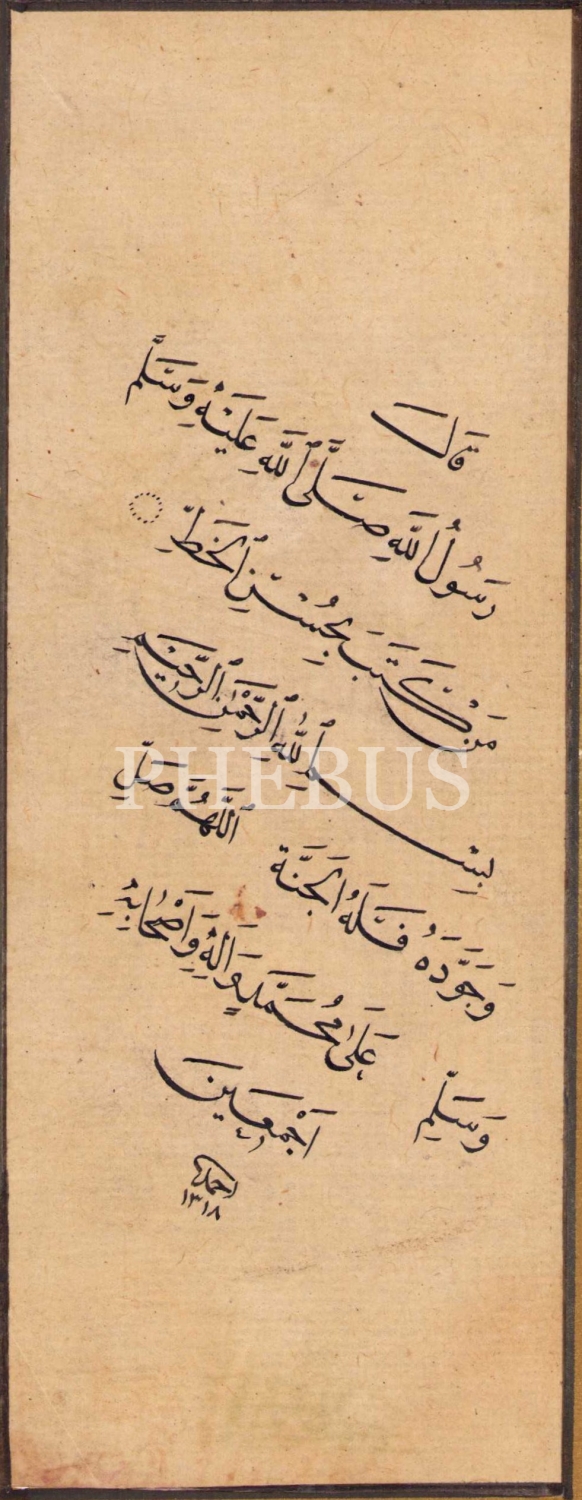 قَالَ
رَسُولُ اللّٰهِ صَلَّى اللّٰهِ عَلَيْهِ وَسَلَّم
مَنْ كَتَبَ بِحُسْنِ الْخَطِّ
بِسْمِ اللّٰهِ الرَّحْمٰنِ الرَّحِيمِ
وَجَوَّدَهُ فَلَهُ الْجَنَّة اَللّٰهُمَّ صَلِّ
عَلَى مُحَمَّدٍ وَاٰلِهِ وَاَصْحَابِهِ
وَسَلِّمْ اَجْمَعِينَ
١٣١٨
PHEBUS